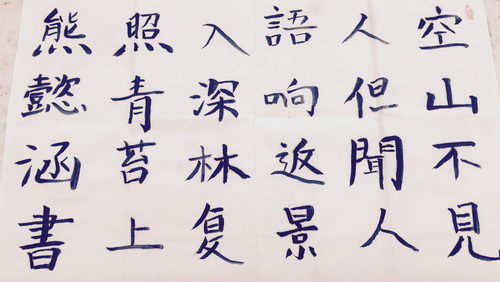 空山不見
人但聞人
語响返景
入深林复
照青苔上
熊懿涵書